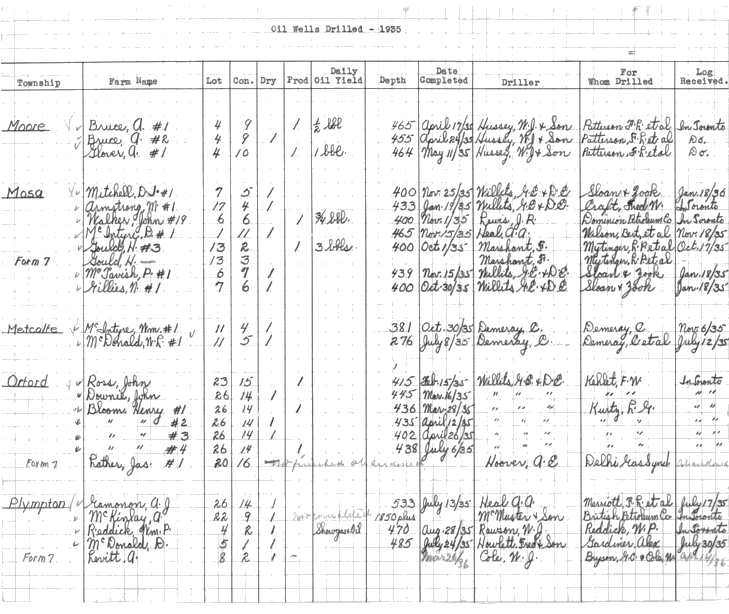 Oil Wells Drilled - 1935
Township Farm Name Lot Con. Dry Prod Daily Oil Yield Depth Date Completed Driller For Whom Drilled Log Received.
Moore Bruce, A. #1 4 9 1 ½ bbl 465 April 17/35 Hussey, W.J. & Son Patterson F.R. et al In Toronto
Bruce, A. #2 4 9 1 455 April 24/35 Hussey, W.J. & Son Patterson, F.R. et al Do.
Glover, A. #1 4 10 1 1 bbl. 464 May 11/35 Hussey, W.J. & Son Patterson, F.R. et al Do.
Mosa Mitchell, D.J. #1 7 5 1 400 Nov. 25/35 Willets, G.E. & D.E. Sloan & Zook Jan. 18/36
Armstrong, M #1 17 4 1 433 Jan. 19/35 Willets, G.E. & D.E. Craft, Fred W. In Toronto
Walker, John #19 6 6 1 ¾ bbl. 400 Nov. 1/35 J.R. Dominion Petroleum Co In Toronto
McIntyre, D. #1 1 11 1 465 Nov. 15/35 Heal, A.A. Wilson, Bert, et al Nov. 18/35
Gould, H. #3 13 2 1 3 bbls 400 Oct. 1/35 Marshant, F. Mytinger, R.P. et al Oct. 17/35
Form 7 Gould, H. — 13 3 Marshant, F. Mytinger, R.P. et al
McTavish, P. #1 6 7 1 439 Nov. 15/35 Willets, G.E. & D.E. Sloan & Zook Jan. 18/35
Gillies, N. #1 7 6 1 400 Oct. 30/35 Willets G.E. & D.E. Sloan & Zook Jan. 18/35
Metcalfe McIntyre, Wm. #1 11 4 1 381 Oct. 30/35 Demeray, C. Demeray, C Nov. 6/35
McDonald, W.R. #1 11 5 1 276 July 8/35 Demeray, C. Demeray, C et al July 12/35
Orford Ross, John 23 15 1 415 Feb. 15/35 Willets, G.E. & D.E. Kellet, F.W. In Toronto
Downie, John 26 14 1 445 Mar. 16/35 " " " " " " "
Bloom, Henry #1 26 14 1 436 Mar. 28/35 " " " Kurtz, R.G. " "
" " #2 26 14 1 435 April 12/35 " " " " " " "
" " #3 26 14 1 402 April 26/35 " " " " " " "
" " #4 26 14 1 438 July 6/35 " " " " " " "
Form 7 Lather, Jas. #1 20 16 — Not finished abandoned Hoover, A.E Delhi Gas Synd Abandoned
Plympton Gammon, A.J 26 14 1 533 July 13/35 Heal A.A. Merriott, F.R. et al July 17/35
McKinlay, A 22 9 1 not completed 1850 plus McMaster & Son British Petroleum Co In Toronto
Reddick, Wm. P. 4 2 1 Show gas & oil 470 Aug. 28/35 Rawson, W.J Reddick, W.P. In Toronto
McDonald, D. 5 1 1 485 July 24/35 Howlett, Fred & Son Gardiner, Alex July 30/35
Form 7. Levitt, A. 8 2 1 - Mar 26/36 Cole, W.J. Bryson, G.C. & Cole, W.